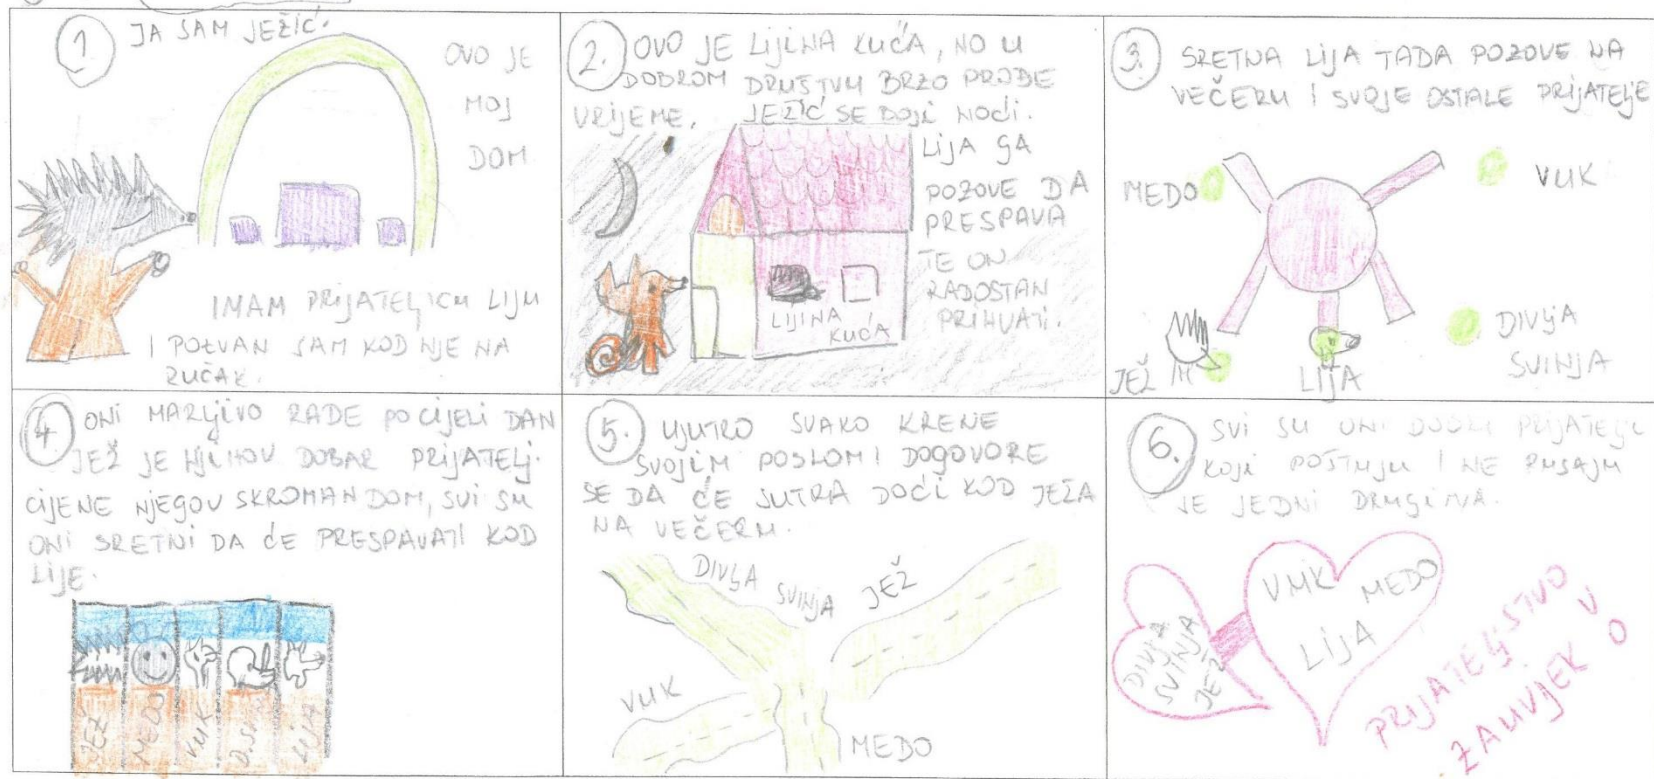 1
JA SAM JEŽIĆ.
OVO JE
MOJ
DOM.
IMAM PRIJATELJICU LIJU
I POZVAN SAM KOD NJE NA
RUČAK.
2.
OVO JE LIJINA KUĆA, NO U
DOBROM DRUŠTVU BRZO PROĐE
VRIJEME. JEŽIĆ SE BOJI NOĆI.
LIJA GA
POZOVE DA
PRESPAVA
TE ON
RADOSTAN
PRIHVATI.
LIJINA
KUĆA
3.
SRETNA LIJA TADA POZOVE NA
VEČERU I SVOJE OSTALE PRIJATELJE
MEDO
VUK
DIVLJA
SVINJA
JEŽ
LIJA
4.
ONI MARLJIVO RADE PO CIJELI DAN
JEŽ JE NJIHOV DOBAR PRIJATELJ.
CIJENE NJEGOV SKROMAN DOM, SVI SU
ONI SRETNI DA ĆE PRESPAVATI KOD
LIJE.
JEŽ
MEDO
VUK
D.SVINJA
LIJA
5.
UJUTRO SVAKO KRENE
SVOJIM POSLOM I DOGOVORE
SE DA ĆE SUTRA DOĆI KOD JEŽA
NA VEČERU.
DIVLJA
SVINJA
JEŽ
VUK
MEDO
6.
SVI SU ONI DOBRI PRIJATELJI
KOJI POŠTUJU I NE RUGAJU
SE JEDNI DRUGIMA.
DIVLJA
SVINJA
JEŽ
VUK
MEDO
LIJA
PRIJATELJSTVO
ZAUVIJEK